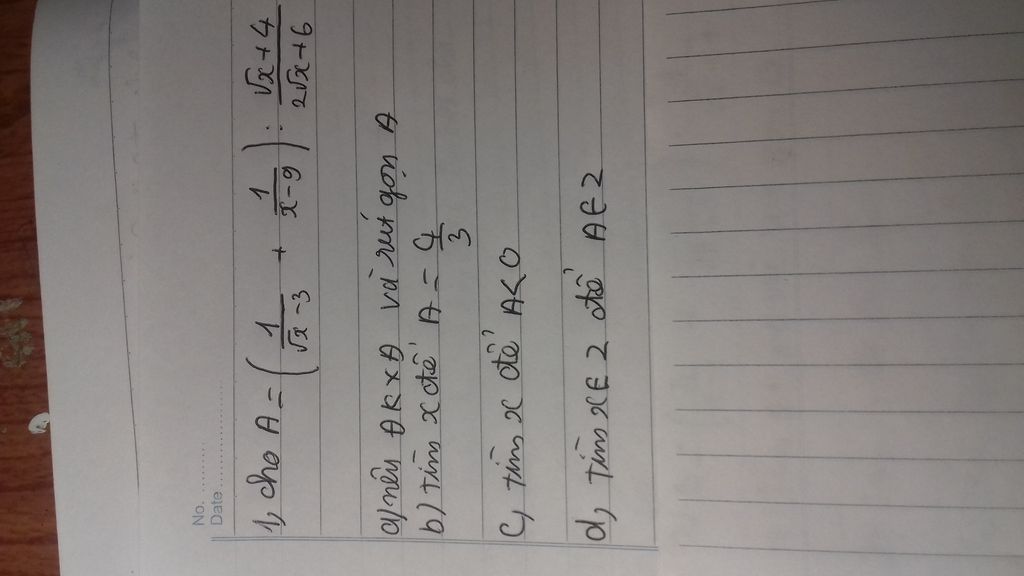 No. ..........
Date ....................
1, cho A = ( 1/(√x - 3) + 1/(x - 9) ) : (√x + 4)/(2√x + 6)
a, nêu ĐKXĐ và rút gọn A
b) tìm x để A = 4/3
c, tìm x để A < 0
d, tìm x ∈ Z để A ∈ Z